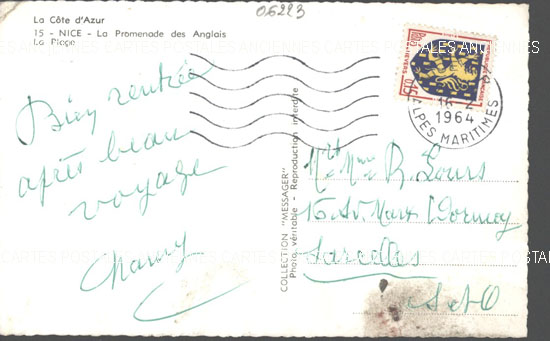 La Côte d'Azur
15 - NICE - La Promenade des Anglais
La Plage
06223
Bien rentrée
après beau
voyage
COLLECTION "MESSAGER"
Photo véritable - Reproduction interdite
0,15
NEVERS
16
1964
ALPES MARITIMES
Mr et Mme R. Louis
16 Av. Marx Dormoy
Sarcelles
S et O
CARTES POSTALES ANCIENNES